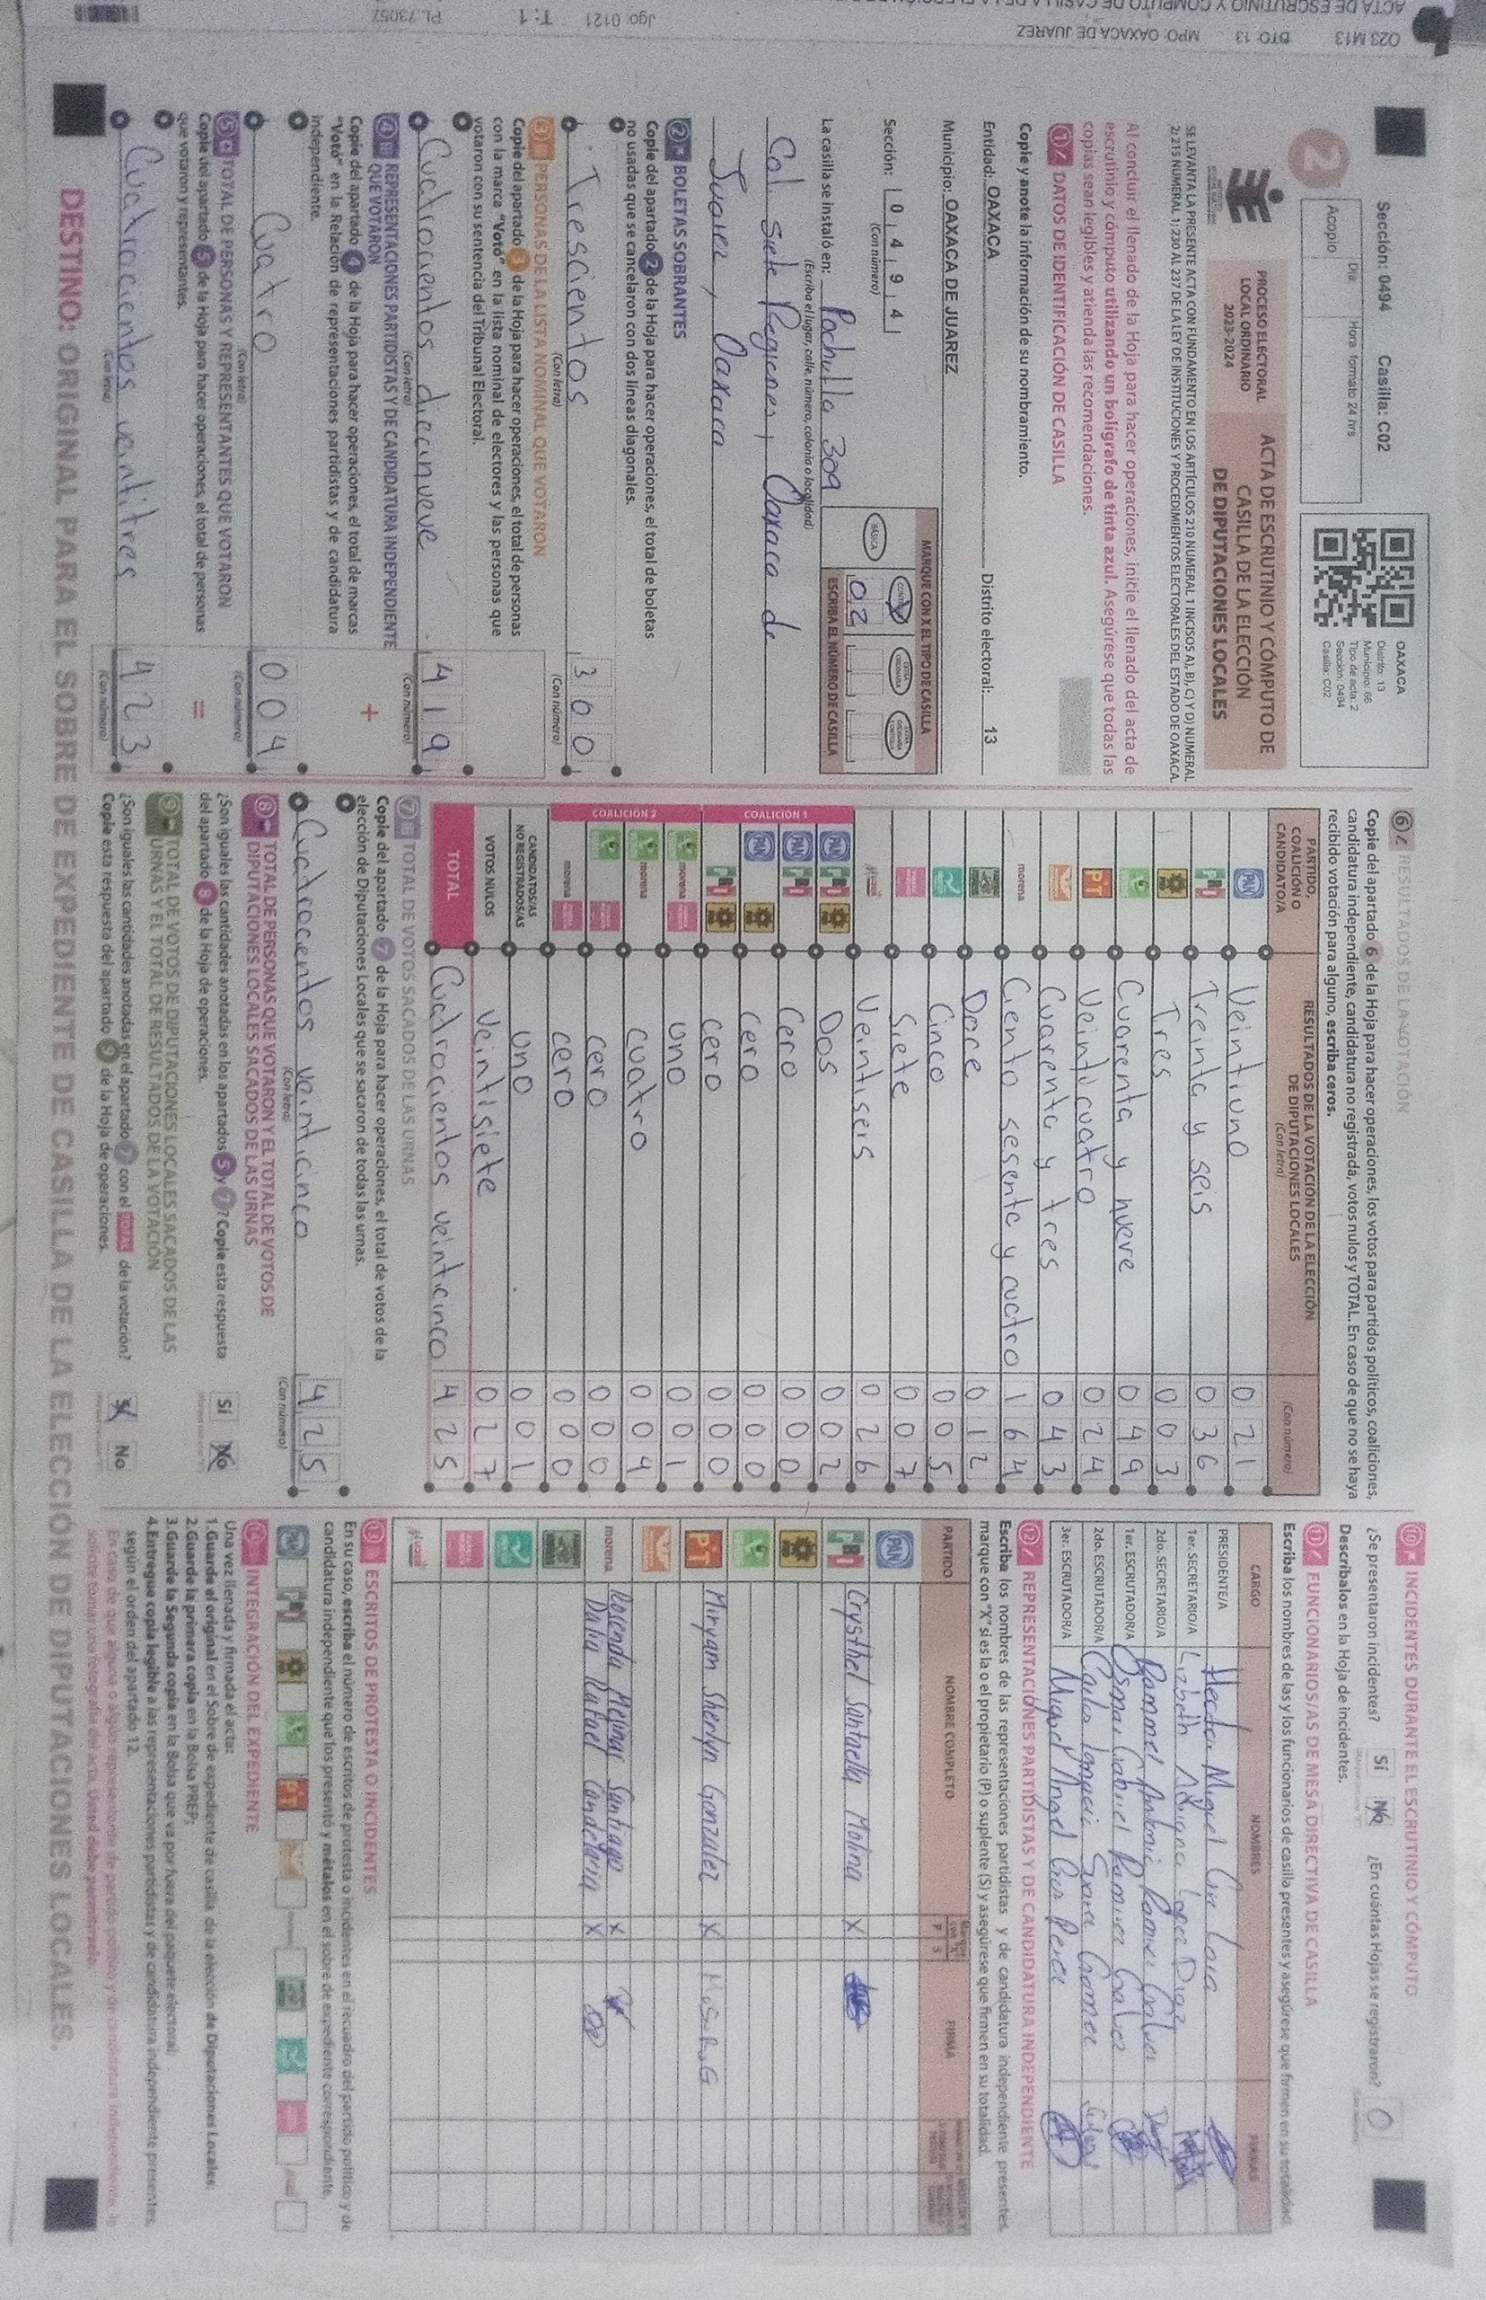 023 M13 DTO: 13 MPO: OAXACA DE JUAREZ Jgo: 0121 T: 1 PL: 73057
Sección: 0494 Casilla: C02
Día: Hora: formato 24 hrs
Acopio
2
OAXACA
Distrito: 13
Municipio: 66
Tipo de acta: 2
Sección: 0494
Casilla: C02
PROCESO ELECTORAL
LOCAL ORDINARIO
2023-2024
ACTA DE ESCRUTINIO Y CÓMPUTO DE
CASILLA DE LA ELECCIÓN
DE DIPUTACIONES LOCALES
SE LEVANTA LA PRESENTE ACTA CON FUNDAMENTO EN LOS ARTÍCULOS 210 NUMERAL 1 INCISOS A), B), C) Y D) NUMERAL
2; 215 NUMERAL 1; 230 AL 237 DE LA LEY DE INSTITUCIONES Y PROCEDIMIENTOS ELECTORALES DEL ESTADO DE OAXACA.
Al concluir el llenado de la Hoja para hacer operaciones, inicie el llenado del acta de
escrutinio y cómputo utilizando un bolígrafo de tinta azul. Asegúrese que todas las
copias sean legibles y atienda las recomendaciones.
1 DATOS DE IDENTIFICACIÓN DE CASILLA
Copie y anote la información de su nombramiento.
Entidad: OAXACA Distrito electoral: 13
Municipio: OAXACA DE JUAREZ
Sección: 0 4 9 4
(Con número)
MARQUE CON X EL TIPO DE CASILLA
BÁSICA
ESCRIBA EL NÚMERO DE CASILLA
02
La casilla se instaló en: Pachulla 309
(Escriba el lugar, calle, número, colonia o localidad)
Col siete Regiones, Oaxaca de
Juarez, Oaxaca
2 BOLETAS SOBRANTES
Copie del apartado 2 de la Hoja para hacer operaciones, el total de boletas
no usadas que se cancelaron con dos líneas diagonales.
Trescientos 3 0 0
(Con letra) (Con número)
3 PERSONAS DE LA LISTA NOMINAL QUE VOTARON
Copie del apartado 3 de la Hoja para hacer operaciones, el total de personas
con la marca "Votó" en la lista nominal de electores y las personas que
votaron con su sentencia del Tribunal Electoral.
Cuatrocientos diecinueve 4 1 9
(Con letra) (Con número)
4 REPRESENTACIONES PARTIDISTAS Y DE CANDIDATURA INDEPENDIENTE
QUE VOTARON
+
Copie del apartado 4 de la Hoja para hacer operaciones, el total de marcas
"Votó" en la Relación de representaciones partidistas y de candidatura
independiente.
Cuatro 0 0 4
(Con letra) (Con número)
5 TOTAL DE PERSONAS Y REPRESENTANTES QUE VOTARON
Copie del apartado 5 de la Hoja para hacer operaciones, el total de personas
que votaron y representantes.
=
Cuatrocientos veintitres 4 2 3
(Con letra) (Con número)
6 RESULTADOS DE LA VOTACIÓN
Copie del apartado 6 de la Hoja para hacer operaciones, los votos para partidos políticos, coaliciones,
candidatura independiente, candidatura no registrada, votos nulos y TOTAL. En caso de que no se haya
recibido votación para alguno, escriba ceros.
PARTIDO,
COALICIÓN O
CANDIDATO/A
RESULTADOS DE LA VOTACIÓN DE LA ELECCIÓN
DE DIPUTACIONES LOCALES
(Con letra) (Con número)
PAN Veintiuno 0 2 1
PRI Treinta y seis 0 3 6
PRD Tres 0 0 3
Cuarenta y nueve 0 4 9
PT Veinticuatro 0 2 4
Cuarenta y tres 0 4 3
morena Ciento sesenta y cuatro 1 6 4
Doce 0 1 2
Cinco 0 0 5
Siete 0 0 7
Veintiseis 0 2 6
COALICIÓN 1
PAN PRI PRD Dos 0 0 2
PAN PRI Cero 0 0 0
PAN PRD Cero 0 0 0
PRI PRD Cero 0 0 0
COALICIÓN 2
morena Uno 0 0 1
morena Cuatro 0 0 4
Cero 0 0 0
morena Cero 0 0 0
CANDIDATOS/AS
NO REGISTRADOS/AS Uno 0 0 1
VOTOS NULOS Veintisiete 0 2 7
TOTAL Cuatrocientos veinticinco 4 2 5
7 TOTAL DE VOTOS SACADOS DE LAS URNAS
Copie del apartado 7 de la Hoja para hacer operaciones, el total de votos de la
elección de Diputaciones Locales que se sacaron de todas las urnas.
Cuatrocientos veinticinco 4 2 5
(Con letra) (Con número)
8 TOTAL DE PERSONAS QUE VOTARON Y EL TOTAL DE VOTOS DE
DIPUTACIONES LOCALES SACADOS DE LAS URNAS
¿Son iguales las cantidades anotadas en los apartados 5 y 7? Copie esta respuesta
del apartado 8 de la Hoja de operaciones.
Sí No
9 TOTAL DE VOTOS DE DIPUTACIONES LOCALES SACADOS DE LAS
URNAS Y EL TOTAL DE RESULTADOS DE LA VOTACIÓN
¿Son iguales las cantidades anotadas en el apartado 7 con el TOTAL de la votación?
Copie esta respuesta del apartado 9 de la Hoja de operaciones.
Sí No
10 INCIDENTES DURANTE EL ESCRUTINIO Y CÓMPUTO
¿Se presentaron incidentes? Sí No ¿En cuántas Hojas se registraron? 0
Descríbalos en la Hoja de incidentes.
11 FUNCIONARIOS/AS DE MESA DIRECTIVA DE CASILLA
Escriba los nombres de las y los funcionarios de casilla presentes y asegúrese que firmen en su totalidad.
CARGO NOMBRES FIRMAS
PRESIDENTE/A Hector Miguel
1er. SECRETARIO/A Lizbeth Lopez Diaz
2do. SECRETARIO/A Rommel Antonio
1er. ESCRUTADOR/A Osmar Gabriel Ramirez
2do. ESCRUTADOR/A Carlos Ignacio
3er. ESCRUTADOR/A Miguel Angel Cruz Perez
12 REPRESENTACIONES PARTIDISTAS Y DE CANDIDATURA INDEPENDIENTE
Escriba los nombres de las representaciones partidistas y de candidatura independiente presentes,
marque con "X" si es la o el propietario (P) o suplente (S) y asegúrese que firmen en su totalidad.
PARTIDO NOMBRE COMPLETO P S FIRMA
PAN
PRI Crysthel Santaella Molina X
PRD
PT Miryam Sherlyn Gonzalez X M.S.R.G
morena Rosenda Melinas Santiago X
Dalia Rafael Candelaria X
13 ESCRITOS DE PROTESTA O INCIDENTES
En su caso, escriba el número de escritos de protesta o incidentes en el recuadro del partido político y de
candidatura independiente que los presentó y métalos en el sobre de expediente correspondiente.
14 INTEGRACIÓN DEL EXPEDIENTE
Una vez llenada y firmada el acta:
1.Guarde el original en el Sobre de expediente de casilla de la elección de Diputaciones Locales.
2.Guarde la primera copia en la Bolsa PREP;
3.Guarde la Segunda copia en la Bolsa que va por fuera del paquete electoral;
4.Entregue copia legible a las representaciones partidistas y de candidatura independiente presentes,
según el orden del apartado 12.
En caso de que alguna o algún representante de partido político y de candidatura independiente, le
solicite tomar una fotografía del acta, Usted debe permitírselo.
DESTINO: ORIGINAL PARA EL SOBRE DE EXPEDIENTE DE CASILLA DE LA ELECCIÓN DE DIPUTACIONES LOCALES.